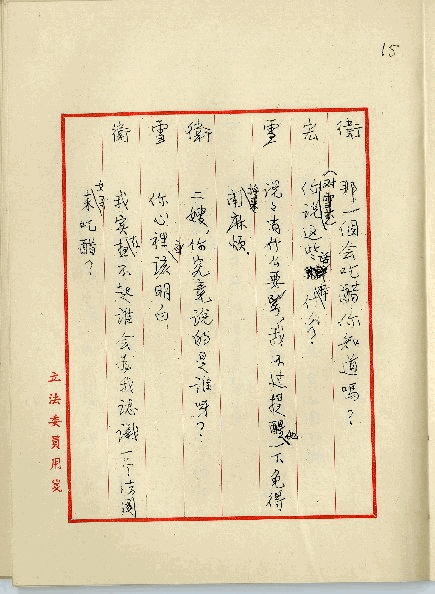 15
衛　那一個会吃醋你知道嗎？
宏　(对雪容)你说这些話幹什么？
雪　说说有什么要緊，我不过提醒他一下免得
将来闹麻煩。
衛　二嫂，你究竟说的是谁呀？
雪　你心裡該明白
衛　我实在想不起谁会為我認識一个法國
女子來吃醋？
立法委員用箋